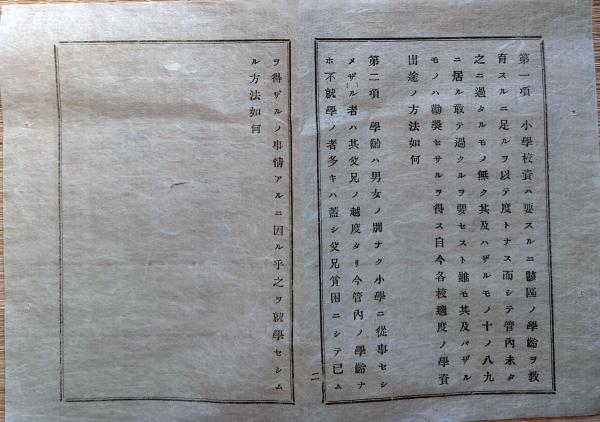 第一項　小學校資ハ要スルニ該區ノ學齡ヲ敎
育スルニ足ルヲ以テ度トナス而シテ管內未タ
之ニ過タルモノ無ク其及ハザルモノ十ノ八九
ニ居ル敢テ過クルヲ要セスト雖モ其及バザル
モノハ勸奬セサルヲ得ス自今各校適度ノ學資
出途ノ方法如何
第二項　學齡ハ男女ノ別ナク小學ニ從事セシ
メザル者ハ其父兄ノ越度タリ今管內ノ學齡ナ
ホ不就學ノ者多キハ蓋シ父兄貧困ニシテ已ム
二
ヲ得ザルノ事情アルニ因ル乎之ヲ就學セシム
ル方法如何